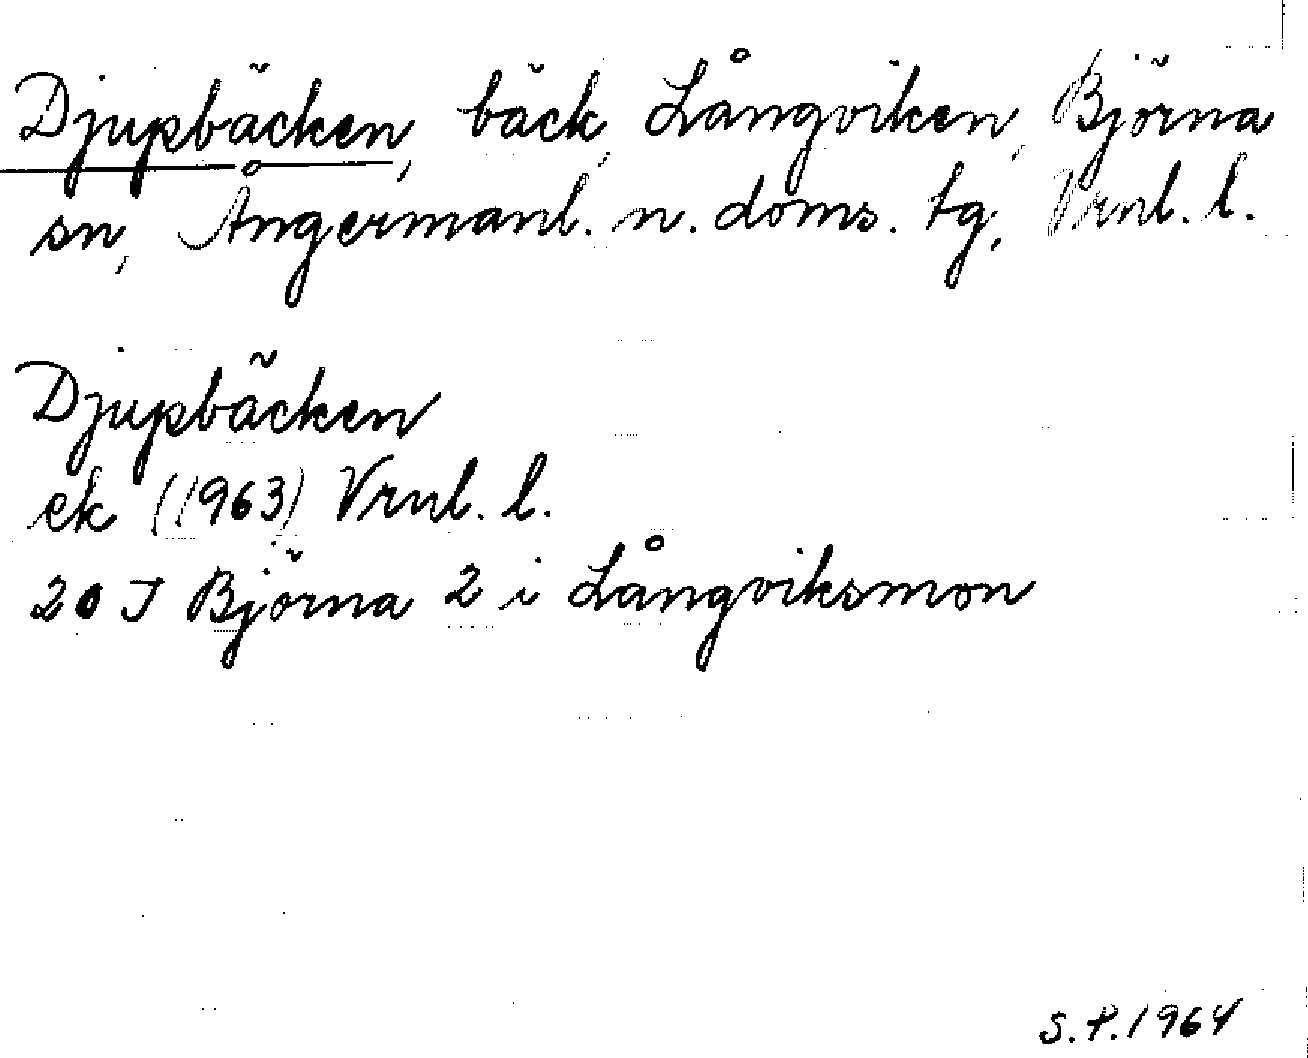 Djupbäcken, bäck, Långviken, Björna
sn, Ångermanl. n. doms. tg, Vrnl. l.
Djupbäcken
ek (1963) Vrnl. l.
20 J Björna 2 i Långviksmon
S.P. 1964